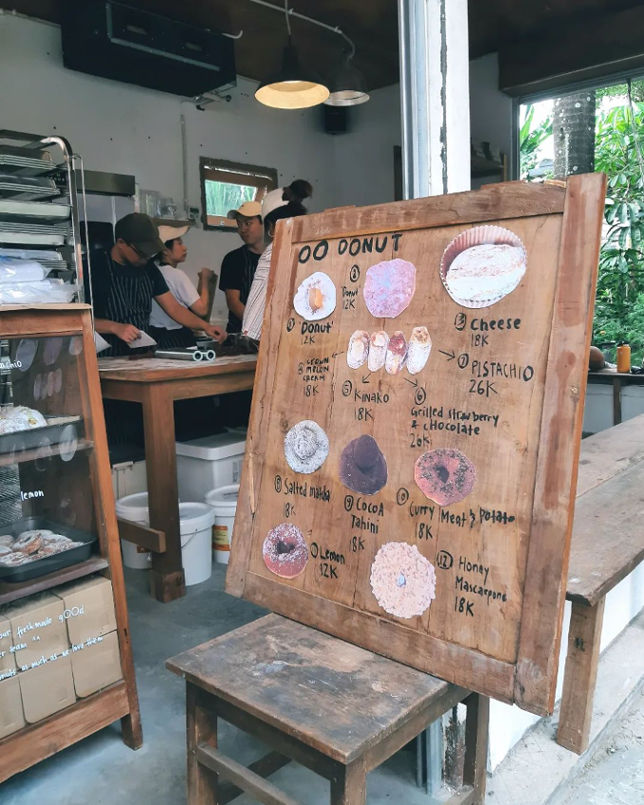 OO DONUT
① 'Donut'
12K
② 'Donut'
12K
③ Cheese
18K
MELON
CREAM
18K
⑤ KINAKO
18K
⑥
Grilled strawberry
& chocolate
26K
⑦ PISTACHIO
26K
⑧ Salted
18K
⑨ COCOA
Tahini
18K
⑩ Curry Meat & Potato
18K
Lemon
12K
⑫ Honey
Mascarpone
18K
lemon
our freshmade gOOd
as much as we have them